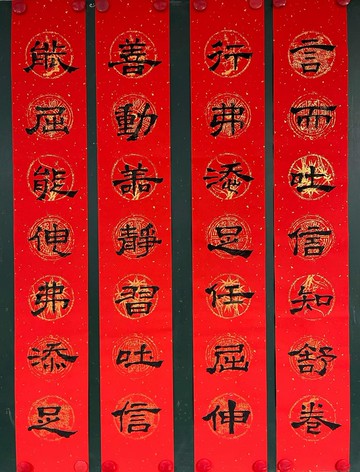 言而吐信知舒卷
行弗添足任屈伸
善動善靜習吐信
能屈能伸弗添足